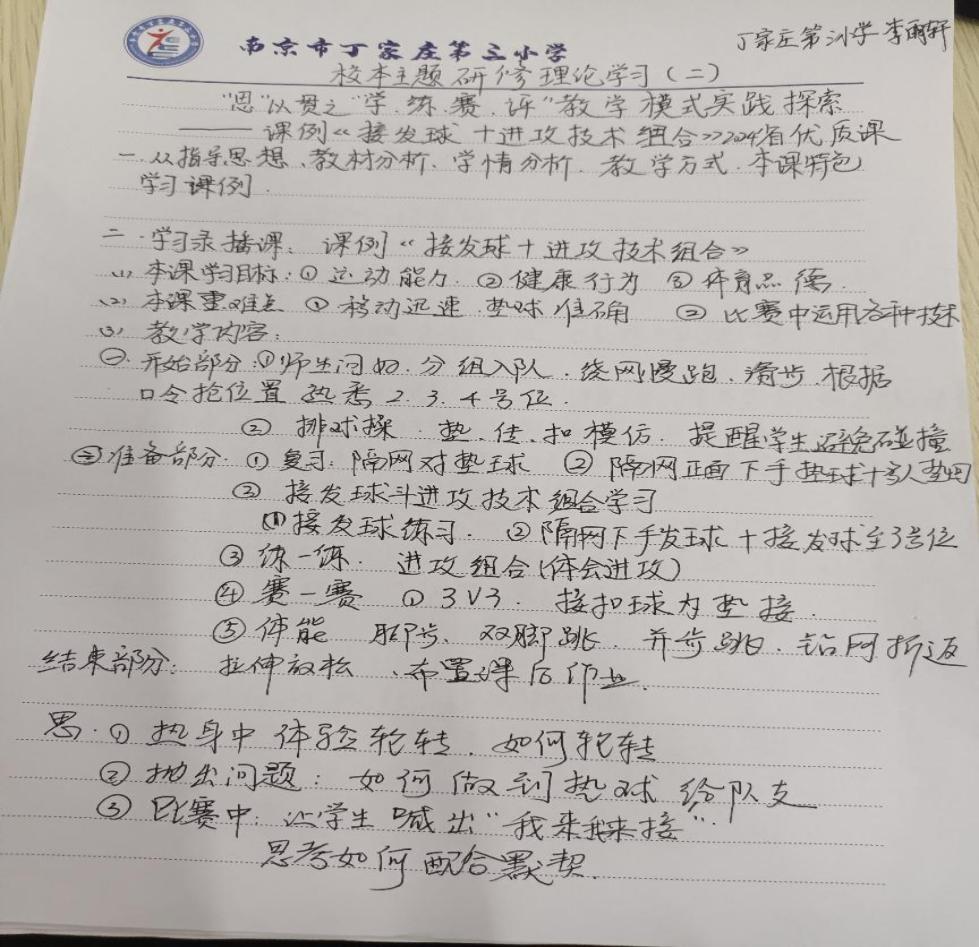 南京市丁家庄第三小学
丁家庄第三小学 李雨轩
校本主题研修理论学习(二)
"思"以贯之"学、练、赛、评"教学模式实践探索
——课例《接发球+进攻技术组合》2024省优质课
一.从指导思想、教材分析、学情分析、教学方式、本课特色
学习课例.
二.学习录播课:课例《接发球+进攻技术组合》
(1) 本课学习目标:①运动能力 ②健康行为 ③体育品德.
(2) 本课重难点 ①移动迅速、垫球准确 ②比赛中运用各种技术
(3) 教学内容:
㊀.开始部分:①师生问好.分组入队.绕网慢跑、滑步.根据
口令抢位置 熟悉2.3.4号位.
② 排球操.垫、传、扣模仿.提醒学生避免碰撞
㊁准备部分.①复习:隔网对垫球 ②隔网正面下手垫球+多人垫
③ 接发球+进攻技术组合学习
①接发球练习.②隔网下手发球+接发球至3号位
③ 练一练.进攻组合(体会进攻)
④ 赛一赛 ① 3V3.接扣球为垫接.
⑤体能 脚步、双脚跳.并步跳.钻网折返
结束部分:拉伸放松、布置课后作业.
思.①热身中体验轮转.如何轮转
②抛出问题:如何做到垫球给队友
③比赛中:让学生喊出"我来我来接".
思考如何配合默契.